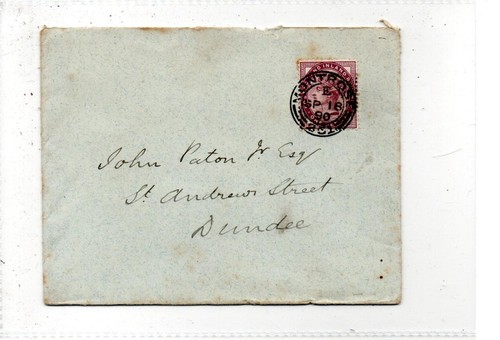 MONTROSE
E
SP 18
90
John Paton Jr Esq
St Andrews Street
Dundee